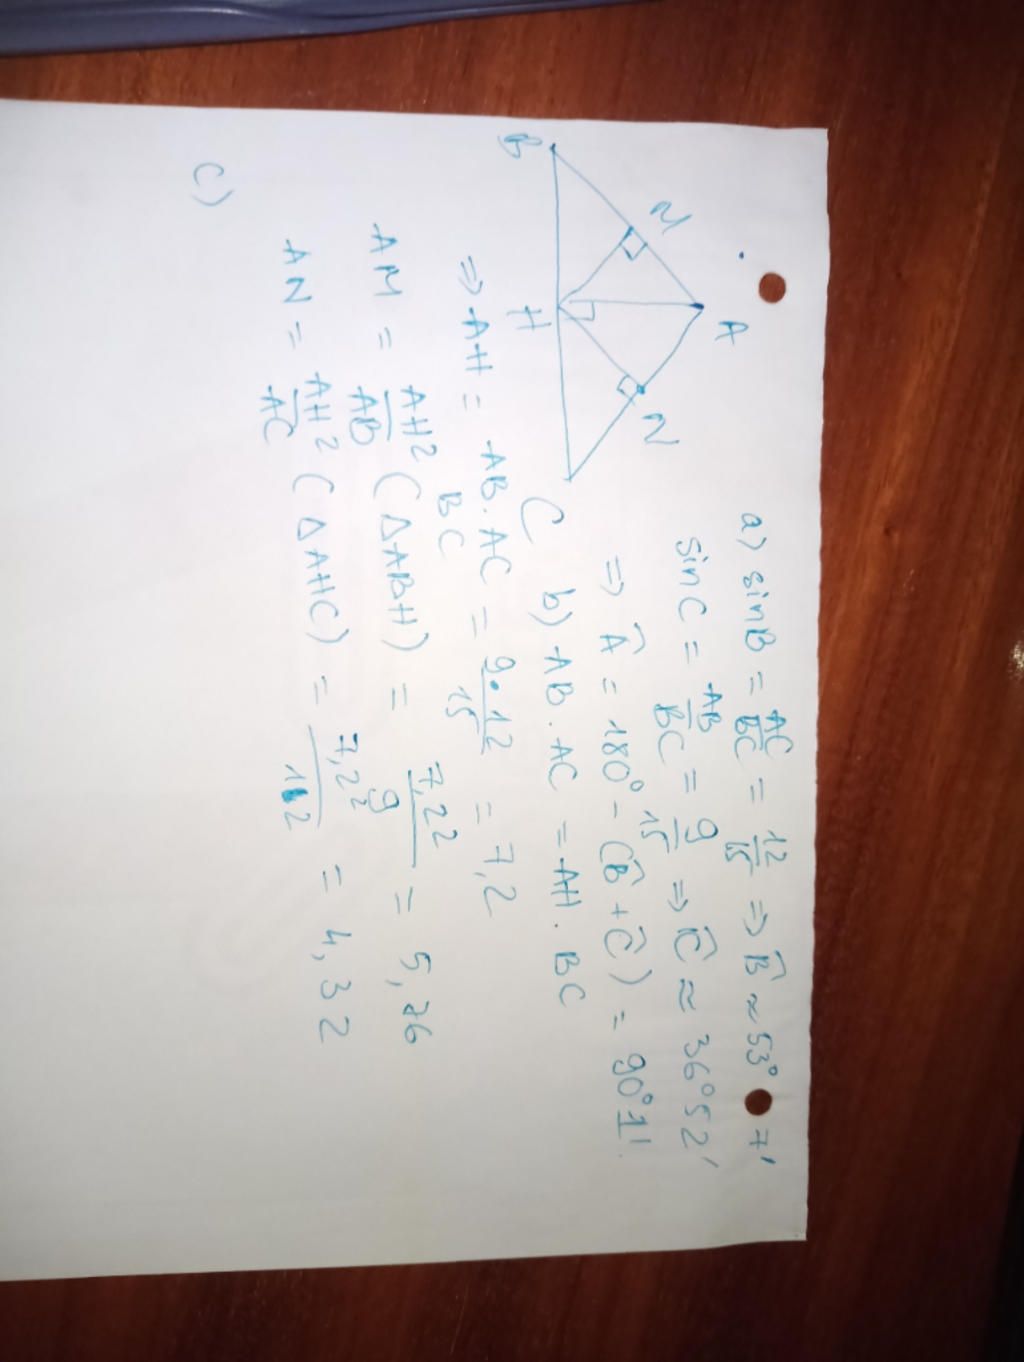 A
M
N
B
H
C
a) sinB = AC/BC = 12/15 => B̂ ≈ 53° 7'
sinC = AB/BC = 9/15 => Ĉ ≈ 36°52'
=> Â = 180° - (B̂ + Ĉ) = 90°1'.
b) AB. AC = AH. BC
=> AH = AB. AC/BC = 9.12/15 = 7,2
AM = AH²/AB (ΔABH) = 7,2²/9 = 5,76
AN = AH²/AC (ΔAHC) = 7,2²/12 = 4,32
c)